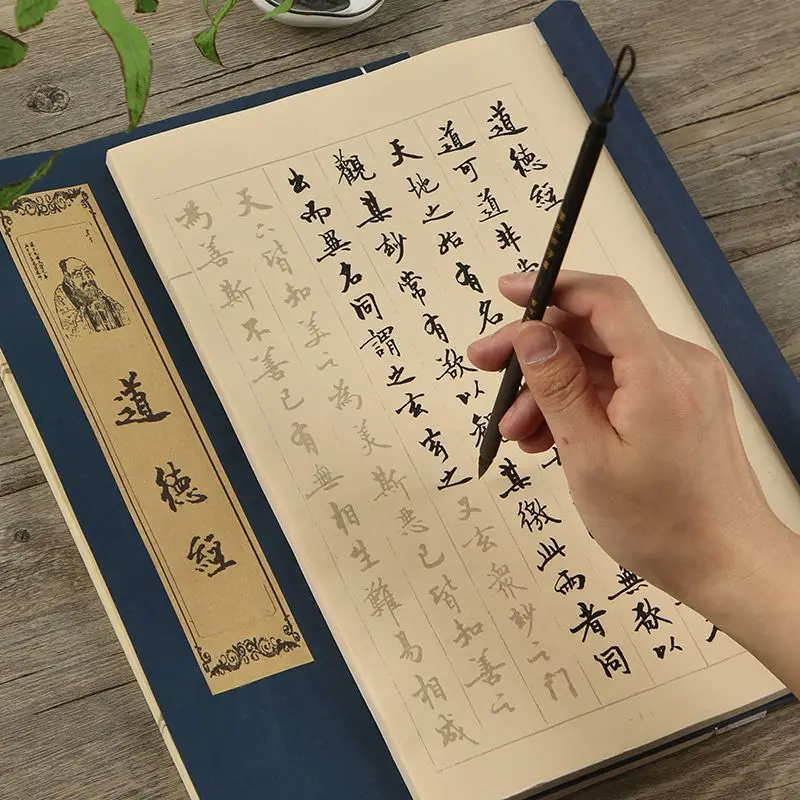 道德經
道可道非
天地之始有名無欲以
觀其妙常有欲以觀其繳此兩者同
出而異名同謂之玄玄之又玄衆妙之門
天下皆知美之為美斯惡已皆知善之
為善斯不善已有無相生難易相成
道德經